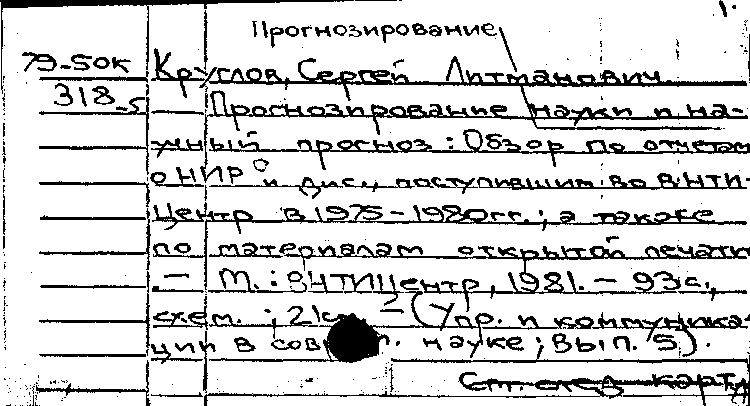 1.
Прогнозирование
79-50к
Круглов, Сергей Литманович.
318-5
Прогнозирование науки и на-
учный прогноз: Обзор по отчетам
о НИР и дис., поступившим во ВНТИ-
Центр в 1975-1980гг.; а также
по материалам открытой печати
.- М.: ВНТИЦентр, 1981. - 93с.,
схем.; 21см - (Упр. и коммуника-
ции в сов. науке; Вып. 5).
См. след. карту